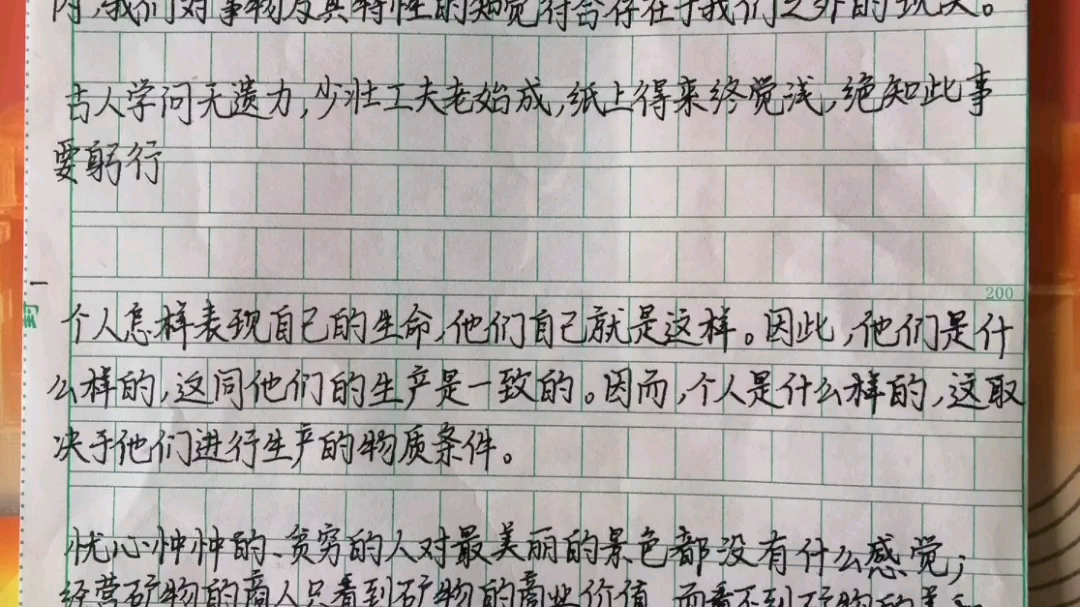 内,我们对事物及其特性的知觉符合存在于我们之外的现实。
古人学问无遗力,少壮工夫老始成,纸上得来终觉浅,绝知此事
要躬行
200
个人怎样表现自己的生命,他们自己就是这样。因此,他们是什
么样的,这同他们的生产是一致的。因而,个人是什么样的,这取
决于他们进行生产的物质条件。
忧心忡忡的、贫穷的人对最美丽的景色都没有什么感觉;
经营矿物的商人只看到矿物的商业价值,而看不到矿物的美和